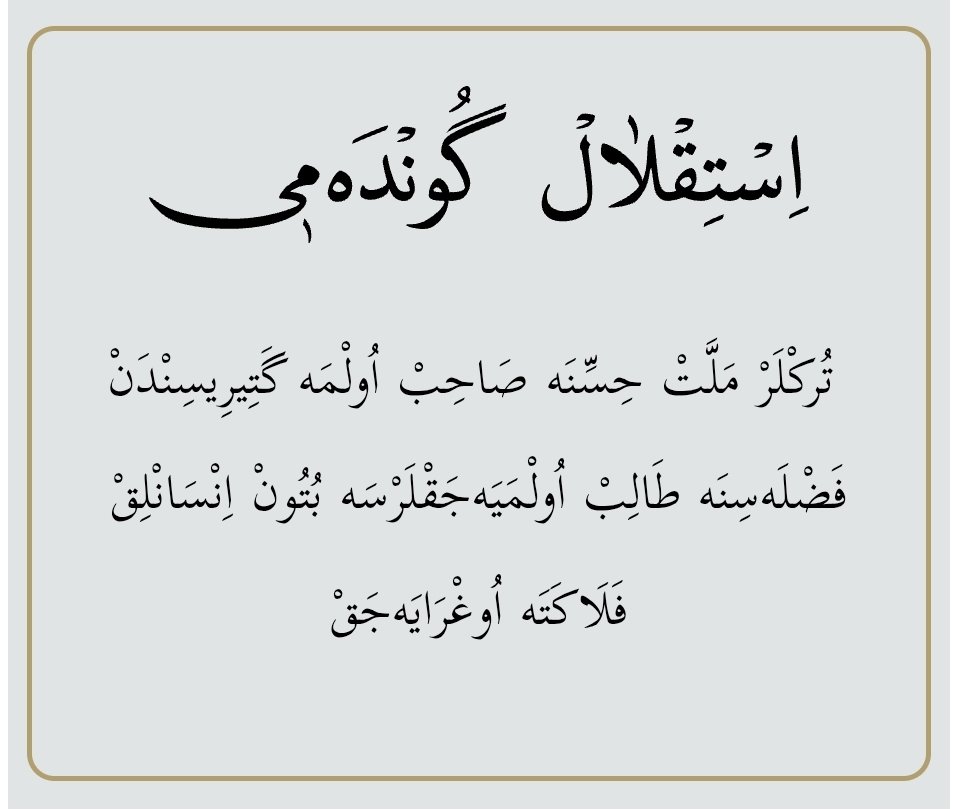 اِسْتِقْلٰالْ گُونْدَه‌مٖي
تُركْلَرْ مَلَّتْ حِسِّنَه صَاحِبْ اُولْمَه گَتِيرِيسِنْدَنْ
فَضْلَه‌سِنَه طَالِبْ اُولْمَيَه‌جَقْلَرْسَه بُتُونْ اِنْسَانْلِقْ
فَلَاكَتَه اُوغْرَايَه‌جَقْ